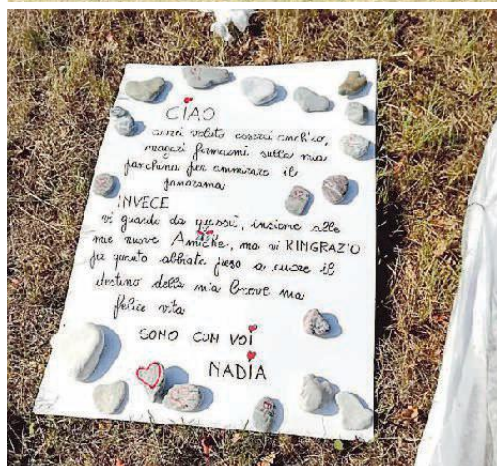 CIAO
avrei voluto esserci anch'io,
magari fermarmi sulla mia
panchina per ammirare il
panorama
INVECE
vi guardo da quassù, insieme alle
mie nuove Amiche, ma vi RINGRAZIO
per quanto abbiate preso a cuore il
destino della mia breve ma
felice vita
SONO CON VOI
NADIA